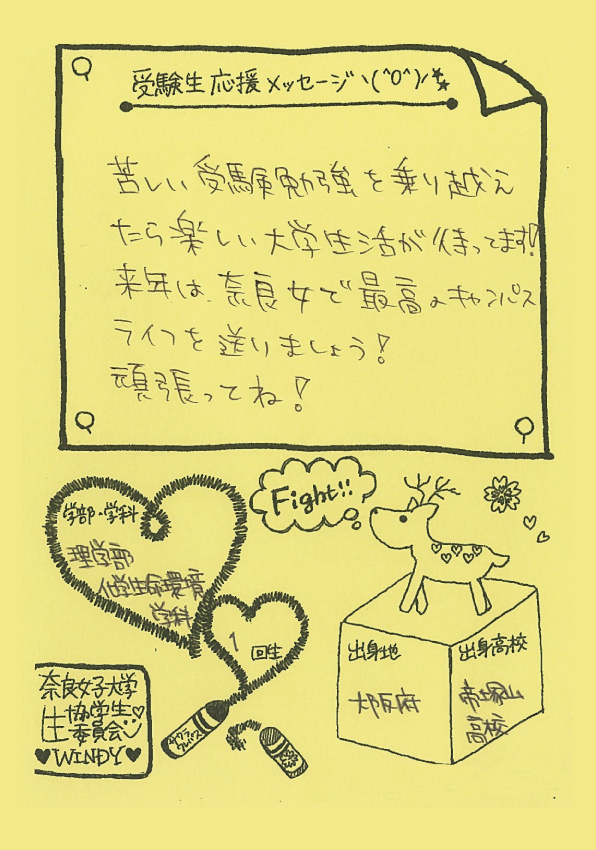 受験生応援メッセージヽ(^O^)ﾉ
苦しい受験勉強を乗り越え
たら楽しい大学生活が待ってます!
来年は、奈良女で最高のキャンパス
ライフを送りましょう!
頑張ってね!
Fight!!
学部・学科
理学部
化学生命環境
学科
1回生
出身地
大阪府
出身高校
帝塚山
高校
奈良女子大学
生協学生
委員会
♥WINDY♥
サクラ
クレパス